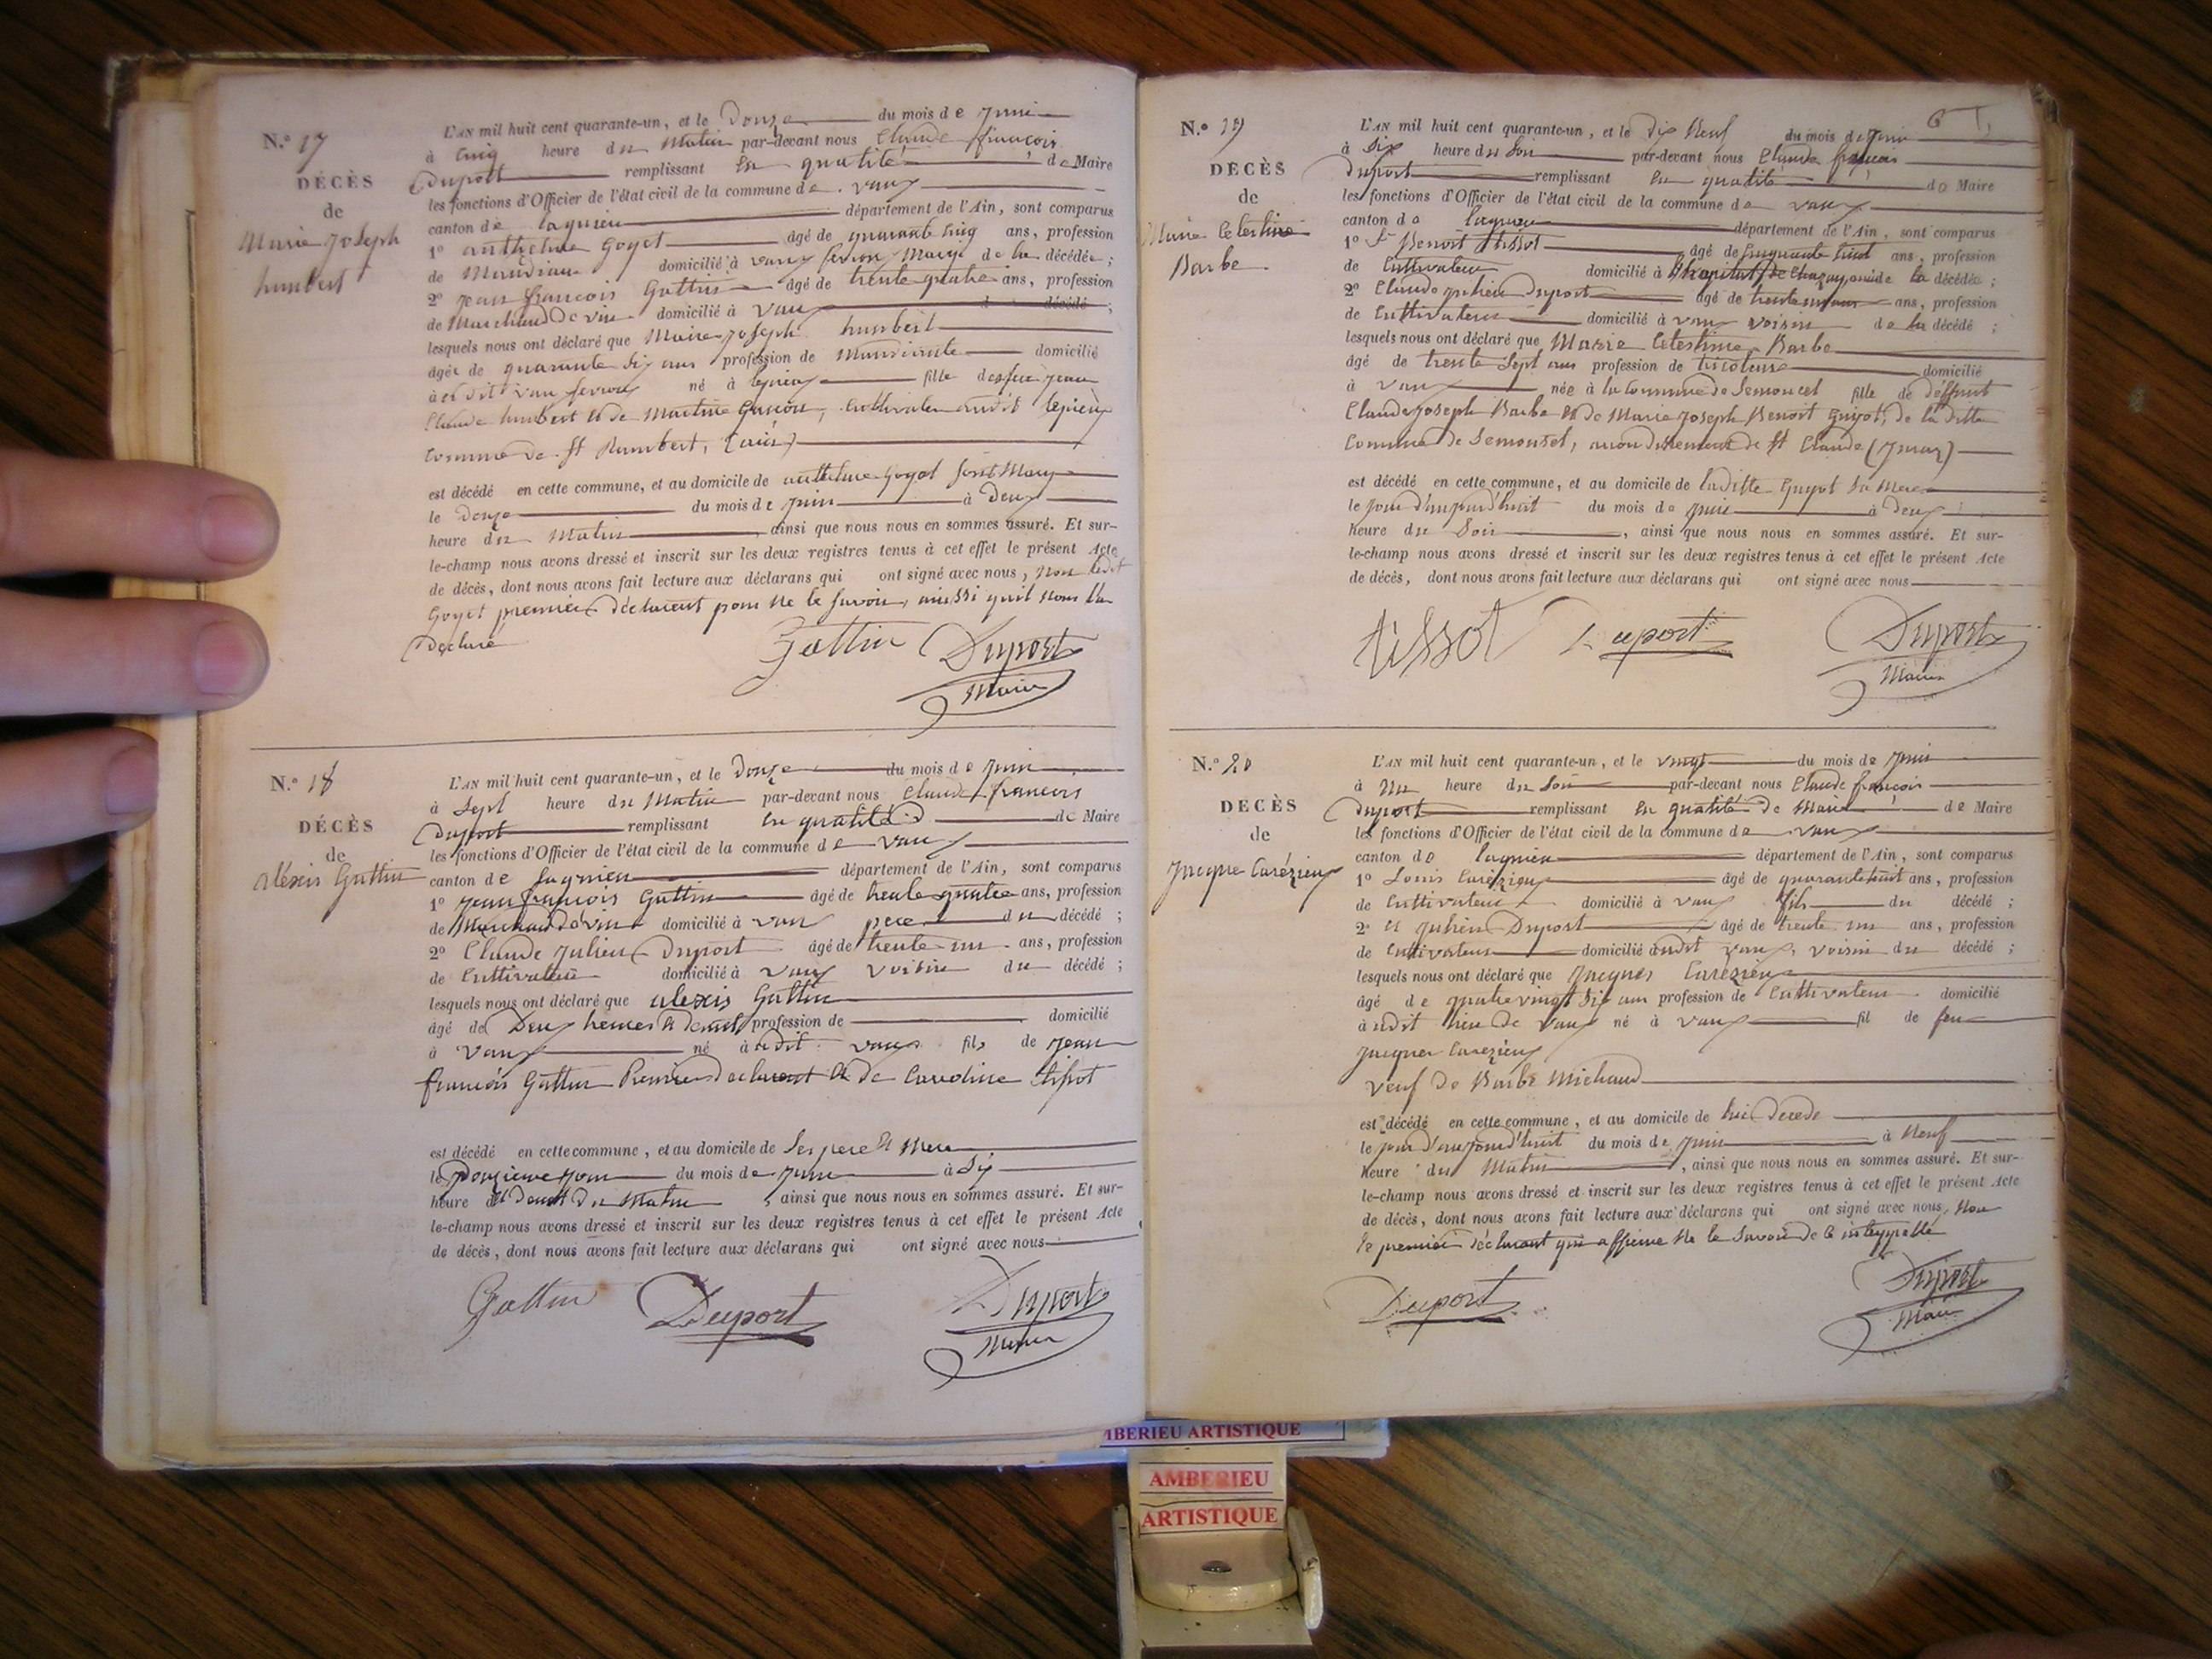 N.° 17
DÉCÈS
de
Marie Joseph
humbert
L'AN mil huit cent quarante-un, et le Douze du mois de Juin
à cinq heure du Matin par-devant nous Claude françois
Duport remplissant en qualité de Maire
les fonctions d'Officier de l'état civil de la commune de vaux
canton de lagnieu département de l'Ain, sont comparus
1° anthelme Goyet âgé de quarante cinq ans, profession
de domicilié à vaux fevroux Mary de la décédée ;
2° jean françois Gattin âgé de trente quatre ans, profession
de Marchand de vin domicilié à vaux d décédé ;
lesquels nous ont déclaré que Marie Joseph humbert
âgée de quarante six ans profession de domicilié
à udit vaux fevroux né à fille des feu jean
Claude humbert & de Martine cultivateur audit
commune de St Rambert, (ain)
est décédé en cette commune, et au domicile de anthelme Goyet son Mary
le Douze du mois de juin à Deux
heure du Matin ainsi que nous nous en sommes assuré. Et sur-
le-champ nous avons dressé et inscrit sur les deux registres tenus à cet effet le présent Acte
de décès, dont nous avons fait lecture aux déclarans qui ont signé avec nous, non ledit
Goyet premier déclarant pour ne le savoir, ainsi qu'il nous l'a
Déclaré
Gattin Duport
Maire
N.° 18
DÉCÈS
de
alexis Gattin
L'AN mil huit cent quarante-un, et le Douze du mois de Juin
à Sept heure du Matin par-devant nous Claude françois
Duport remplissant en qualité de Maire
les fonctions d'Officier de l'état civil de la commune de vaux
canton de Lagnieu département de l'Ain, sont comparus
1° jean françois Gattin âgé de trente quatre ans, profession
de Marchand de vin domicilié à vaux pere du décédé ;
2° Claude Julien Duport âgé de trente un ans, profession
de Cultivateur domicilié à vaux voisin du décédé ;
lesquels nous ont déclaré que alexis Gattin
âgé de Deux heures & demi profession de domicilié
à vaux né à udit vaux fils de jean
françois Gattin Premier declarant & de Caroline tissot
est décédé en cette commune, et au domicile de Ses pere & Mere
le Douzieme jour du mois de juin à Six
heure & demi du Matin, ainsi que nous nous en sommes assuré. Et sur-
le-champ nous avons dressé et inscrit sur les deux registres tenus à cet effet le présent Acte
de décès, dont nous avons fait lecture aux déclarans qui ont signé avec nous
Gattin Duport Duport
Maire
6
N.° 19
DÉCÈS
de
Marie Celestine
Barbe
L'AN mil huit cent quarante-un, et le Dix Neuf du mois de Juin
à Six heure du Soir par-devant nous Claude françois
Duport remplissant en qualité de Maire
les fonctions d'Officier de l'état civil de la commune de vaux
canton de lagnieu département de l'Ain, sont comparus
1° St Benoit tissot âgé de cinquante huit ans, profession
de Cultivateur domicilié à de la décédée ;
2° Claude julien Duport âgé de trente un ans, profession
de Cultivateur domicilié à vaux voisin de la décédé ;
lesquels nous ont déclaré que Marie Celestine Barbe
âgé de trente Sept ans profession de tricoteuse domicilié
à vaux née à la Commune de Semoncel fille de deffunt
Claude joseph Barbe & de Marie joseph Benoit Guyot, de la ditte
Commune de Semonsel, arrondissement de St Claude (Jura)
est décédé en cette commune, et au domicile de laditte Guyot Sa Mere
le jour d'aujourd'huit du mois de juin à Deux
heure du Soir, ainsi que nous nous en sommes assuré. Et sur-
le-champ nous avons dressé et inscrit sur les deux registres tenus à cet effet le présent Acte
de décès, dont nous avons fait lecture aux déclarans qui ont signé avec nous
tissot Duport Duport
Maire
N.° 20
DÉCÈS
de
Jacque Carézieux
L'AN mil huit cent quarante-un, et le vingt du mois de Juin
à Une heure du Soir par-devant nous Claude françois
Duport remplissant en qualité de Maire de Maire
les fonctions d'Officier de l'état civil de la commune de vaux
canton de lagnieu département de l'Ain, sont comparus
1° Louis Carézieux âgé de quarante huit ans, profession
de Cultivateur domicilié à vaux fils du décédé ;
2° et Julien Duport âgé de trente un ans, profession
de Cultivateur domicilié audit vaux, voisin du décédé ;
lesquels nous ont déclaré que Jacques Carézieux
âgé de quatre vingt dix ans profession de Cultivateur domicilié
à udit lieu de vaux né à vaux fil de feu
Jacques Carezieux
veuf de Barbe Michaud
est décédé en cette commune, et au domicile de lui Decede
le jour d'aujourd'huit du mois de Juin à Neuf
heure du Matin, ainsi que nous nous en sommes assuré. Et sur-
le-champ nous avons dressé et inscrit sur les deux registres tenus à cet effet le présent Acte
de décès, dont nous avons fait lecture aux déclarans qui ont signé avec nous, non
le premier déclarant qui affirme ne le Savoir de ce interppelle
Duport Duport
Maire
MBERIEU ARTISTIQUE
AMBERIEU
ARTISTIQUE